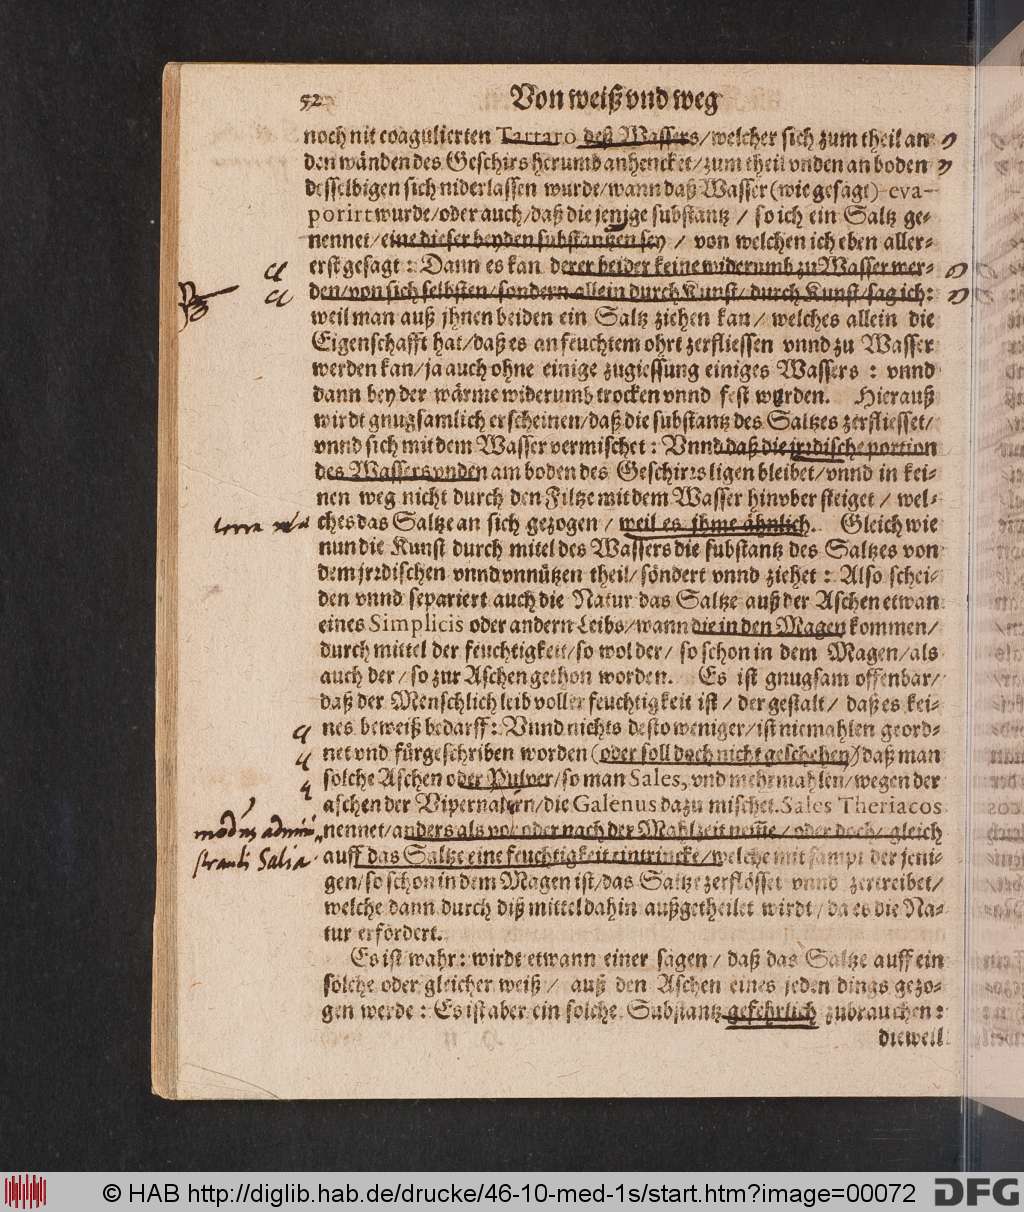 52 Von weiß vnd weg
noch nit coagulierten Tartaro deß Wassers/welcher sich zum theil an
den wänden des Geschirs herumb anhencket/zum theil vnden an boden
desselbigen sich niderlassen wurde/wann daß Wasser (wie gesagt) eva-
porirt wurde/oder auch/daß die jenige substantz / so ich ein Saltz ge-
nennet/eine dieser beyden substantzen sey / von welchen ich eben aller-
erst gesagt : Dann es kan derer beider keine widerumb zu Wasser wer-
den/von sich selbsten/sondern allein durch Kunst/durch Kunst/sag ich:
weil man auß jhnen beiden ein Saltz ziehen kan/ welches allein die
Eigenschafft hat/daß es an feuchtem ohrt zerfliessen vnnd zu Wasser
werden kan/ja auch ohne einige zugiessung einiges Wassers : vnnd
dann bey der wärme widerumb trocken vnnd fest werden. Hierauß
wirdt gnugsamlich erscheinen/daß die substantz des Saltzes zerfliesset/
vnnd sich mit dem Wasser vermischet : Vnnd daß die jrrdische portion
des Wassers vnden am boden des Geschirrs ligen bleibet/vnnd in kei-
nen weg nicht durch den Filtze mit dem Wasser hinvber steiget / wel-
ches das Saltze an sich gezogen / weil es jhme ähnlich. Gleich wie
nun die Kunst durch mitel des Wassers die substantz des Saltzes von
dem jrrdischen vnnd vnnützen theil/söndert vnnd ziehet : Also schei-
den vnnd separiert auch die Natur das Saltze auß der Aschen etwan
eines Simplicis oder andern Leibs/wann die in den Magen kommen/
durch mittel der feuchtigkeit/so wol der/ so schon in dem Magen/als
auch der/so zur Aschen gethon worden. Es ist gnugsam offenbar/
daß der Menschlich leib voller feuchtigkeit ist / der gestalt / daß es kei-
nes beweiß bedarff : Vnnd nichts desto weniger/ist niemahlen geord-
net vnd fürgeschriben worden (oder soll doch nicht geschehen) daß man
solche Aschen oder Pulver/so man Sales, vnd mehrmahlen/wegen der
aschen der Vipernatern/die Galenus dazu mischet.Sales Theriacos
nennet/anders als vor oder nach der Mahlzeit neme/oder doch/ gleich
auff das Saltze eine feuchtigkeit eintrincke/welche mit sampt der jeni-
gen/so schon in dem Magen ist/das Saltze zerflösset vnnd zertreibet/
welche dann durch diß mittel dahin außgetheilet wirdt/da es die Na-
tur erfordert.
Es ist wahr: wirdt etwann einer sagen/ daß das Saltze auff ein
solche oder gleicher weiß / auß den Aschen eines jeden dings gezo-
gen werde : Es ist aber ein solche Substantz gefehrlich zubrauchen:
dieweil
modus admini
strandi Salia.
© HAB http://diglib.hab.de/drucke/46-10-med-1s/start.htm?image=00072 DFG